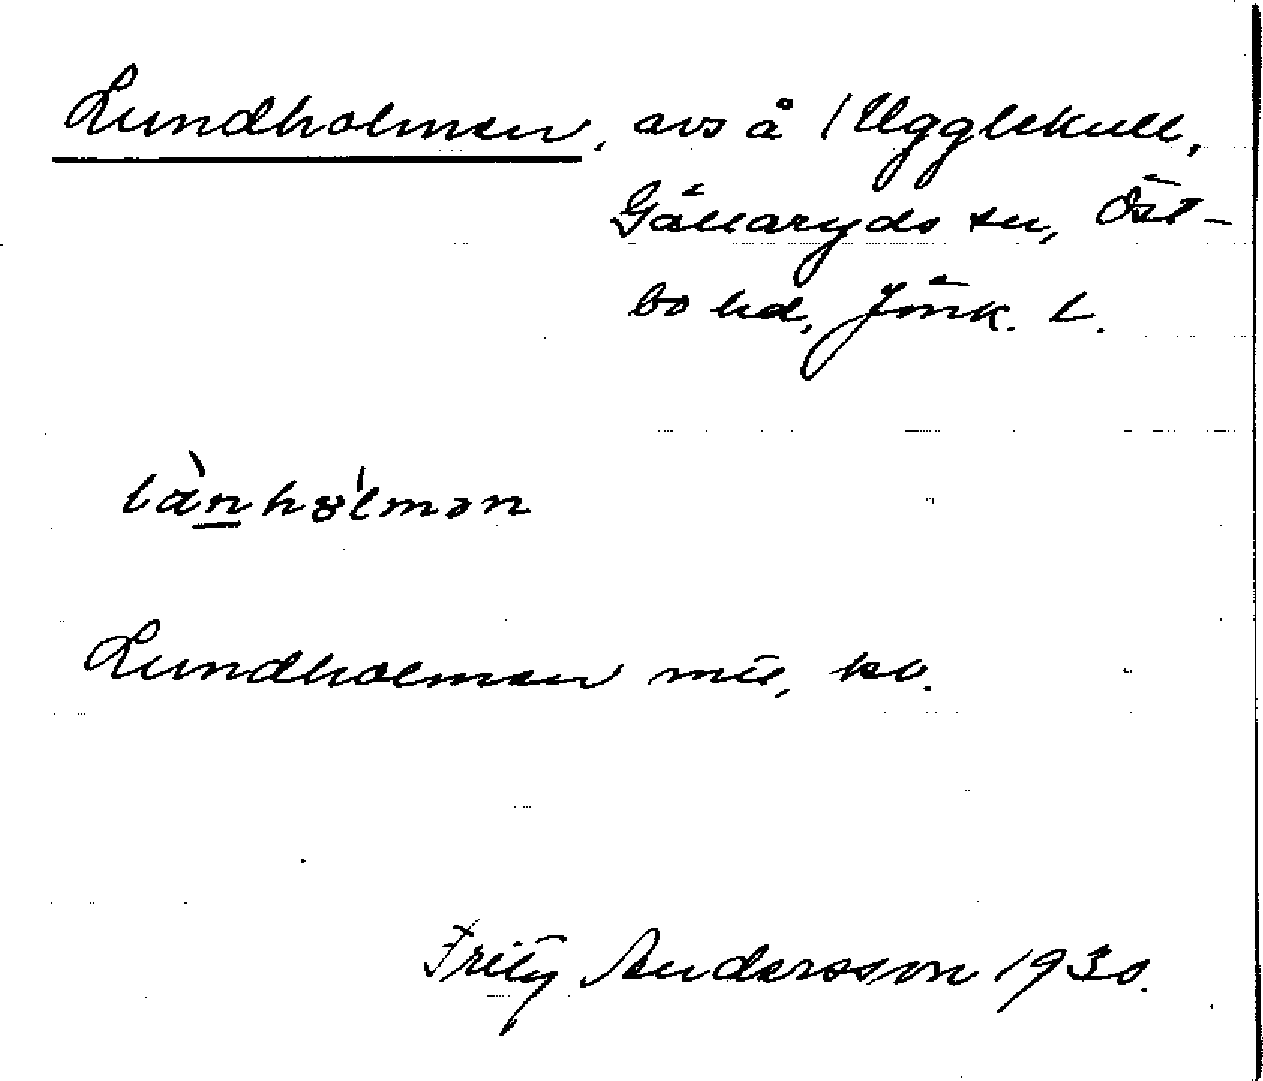 Lundholmen, avs å 1 Ugglekull,
Gällaryds sn, Öst-
bo hd, Jönk. l.
lànhólmən
Lundholmen mtl, kv.
Fritz Andersson 1930.